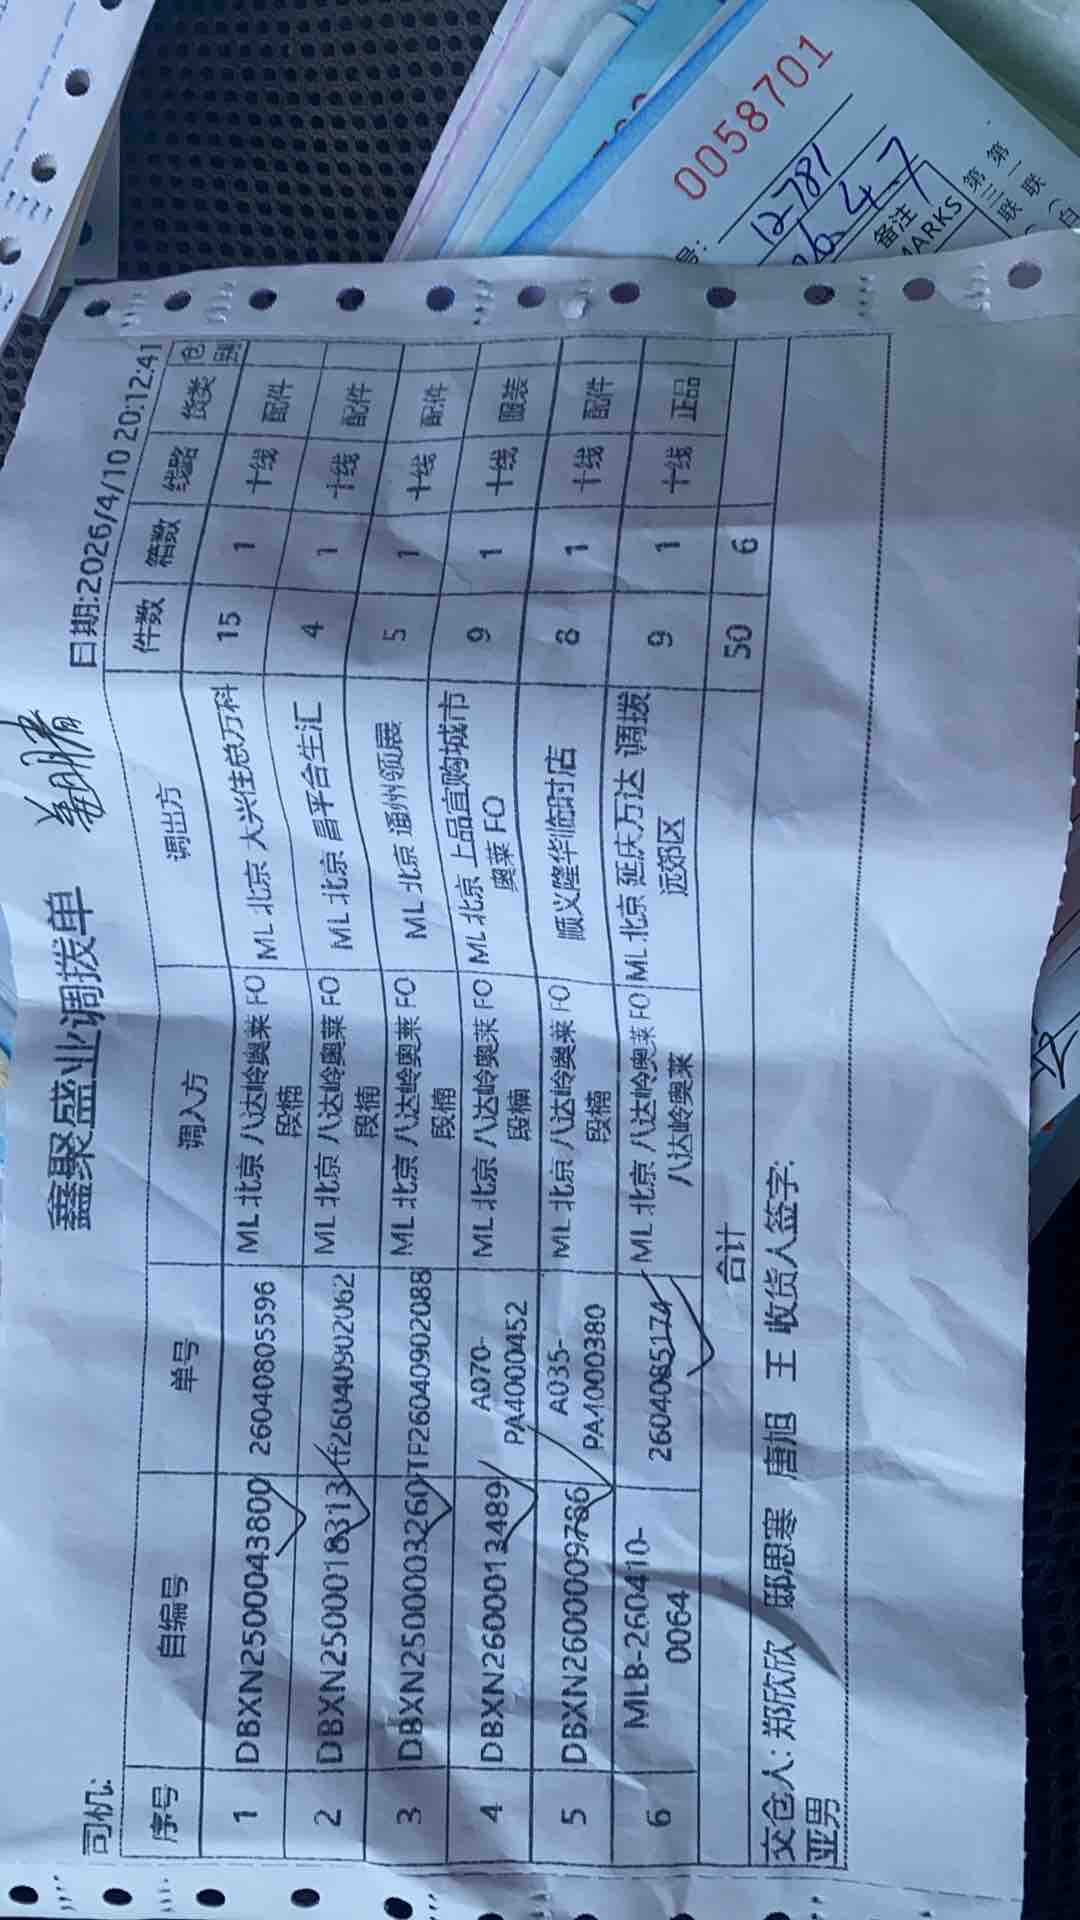 鑫聚盛业调拨单
司机:
日期:2026/4/10 20:12:41
序号 自编号 单号 调入方 调出方 件数 箱数 线路 货类 仓
1 DBXN2500043800 26040805596 ML 北京 八达岭奥莱 FO ML 北京 大兴住总万科 15 1 十线 配件
段楠
2 DBXN2500018313 tf26040902062 ML 北京 八达岭奥莱 FO ML 北京 昌平合生汇 4 1 十线 配件
段楠
3 DBXN2500003260 TF26040902088 ML 北京 八达岭奥莱 FO ML 北京 通州领展 5 1 十线 配件
段楠
4 DBXN2600013489 A070- ML 北京 八达岭奥莱 FO ML 北京 上品宜购城市 9 1 十线 服装
PA4000452 段楠 奥莱 FO
5 DBXN2600009786 A035- ML 北京 八达岭奥莱 FO 顺义隆华临时店 8 1 十线 配件
PA4000380 段楠
6 MLB-260410- 2604085174 ML 北京 八达岭奥莱 FO ML 北京 延庆万达 调拨 9 1 十线 正品
0064 八达岭奥莱 远郊区
合计 50 6
交仓人: 郑欣欣 邸思寒 唐旭 王 收货人签字:
亚男
0058701
号:
12-781
4.7
备注
MARKS
第一联
第三联